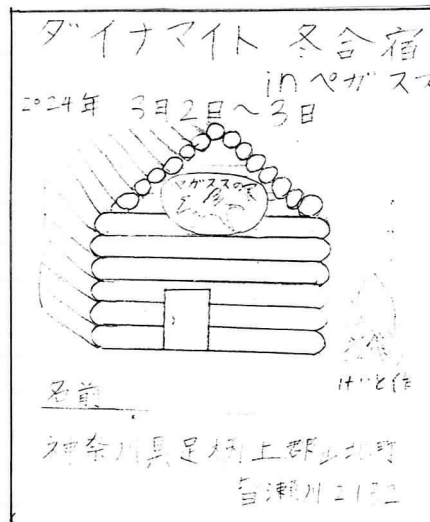 ダイナマイト 冬合宿
inペガスス
2024年 3月2日〜3日
ペガススの家
けいと作
名前
神奈川県足柄上郡山北町
皆瀬川2132